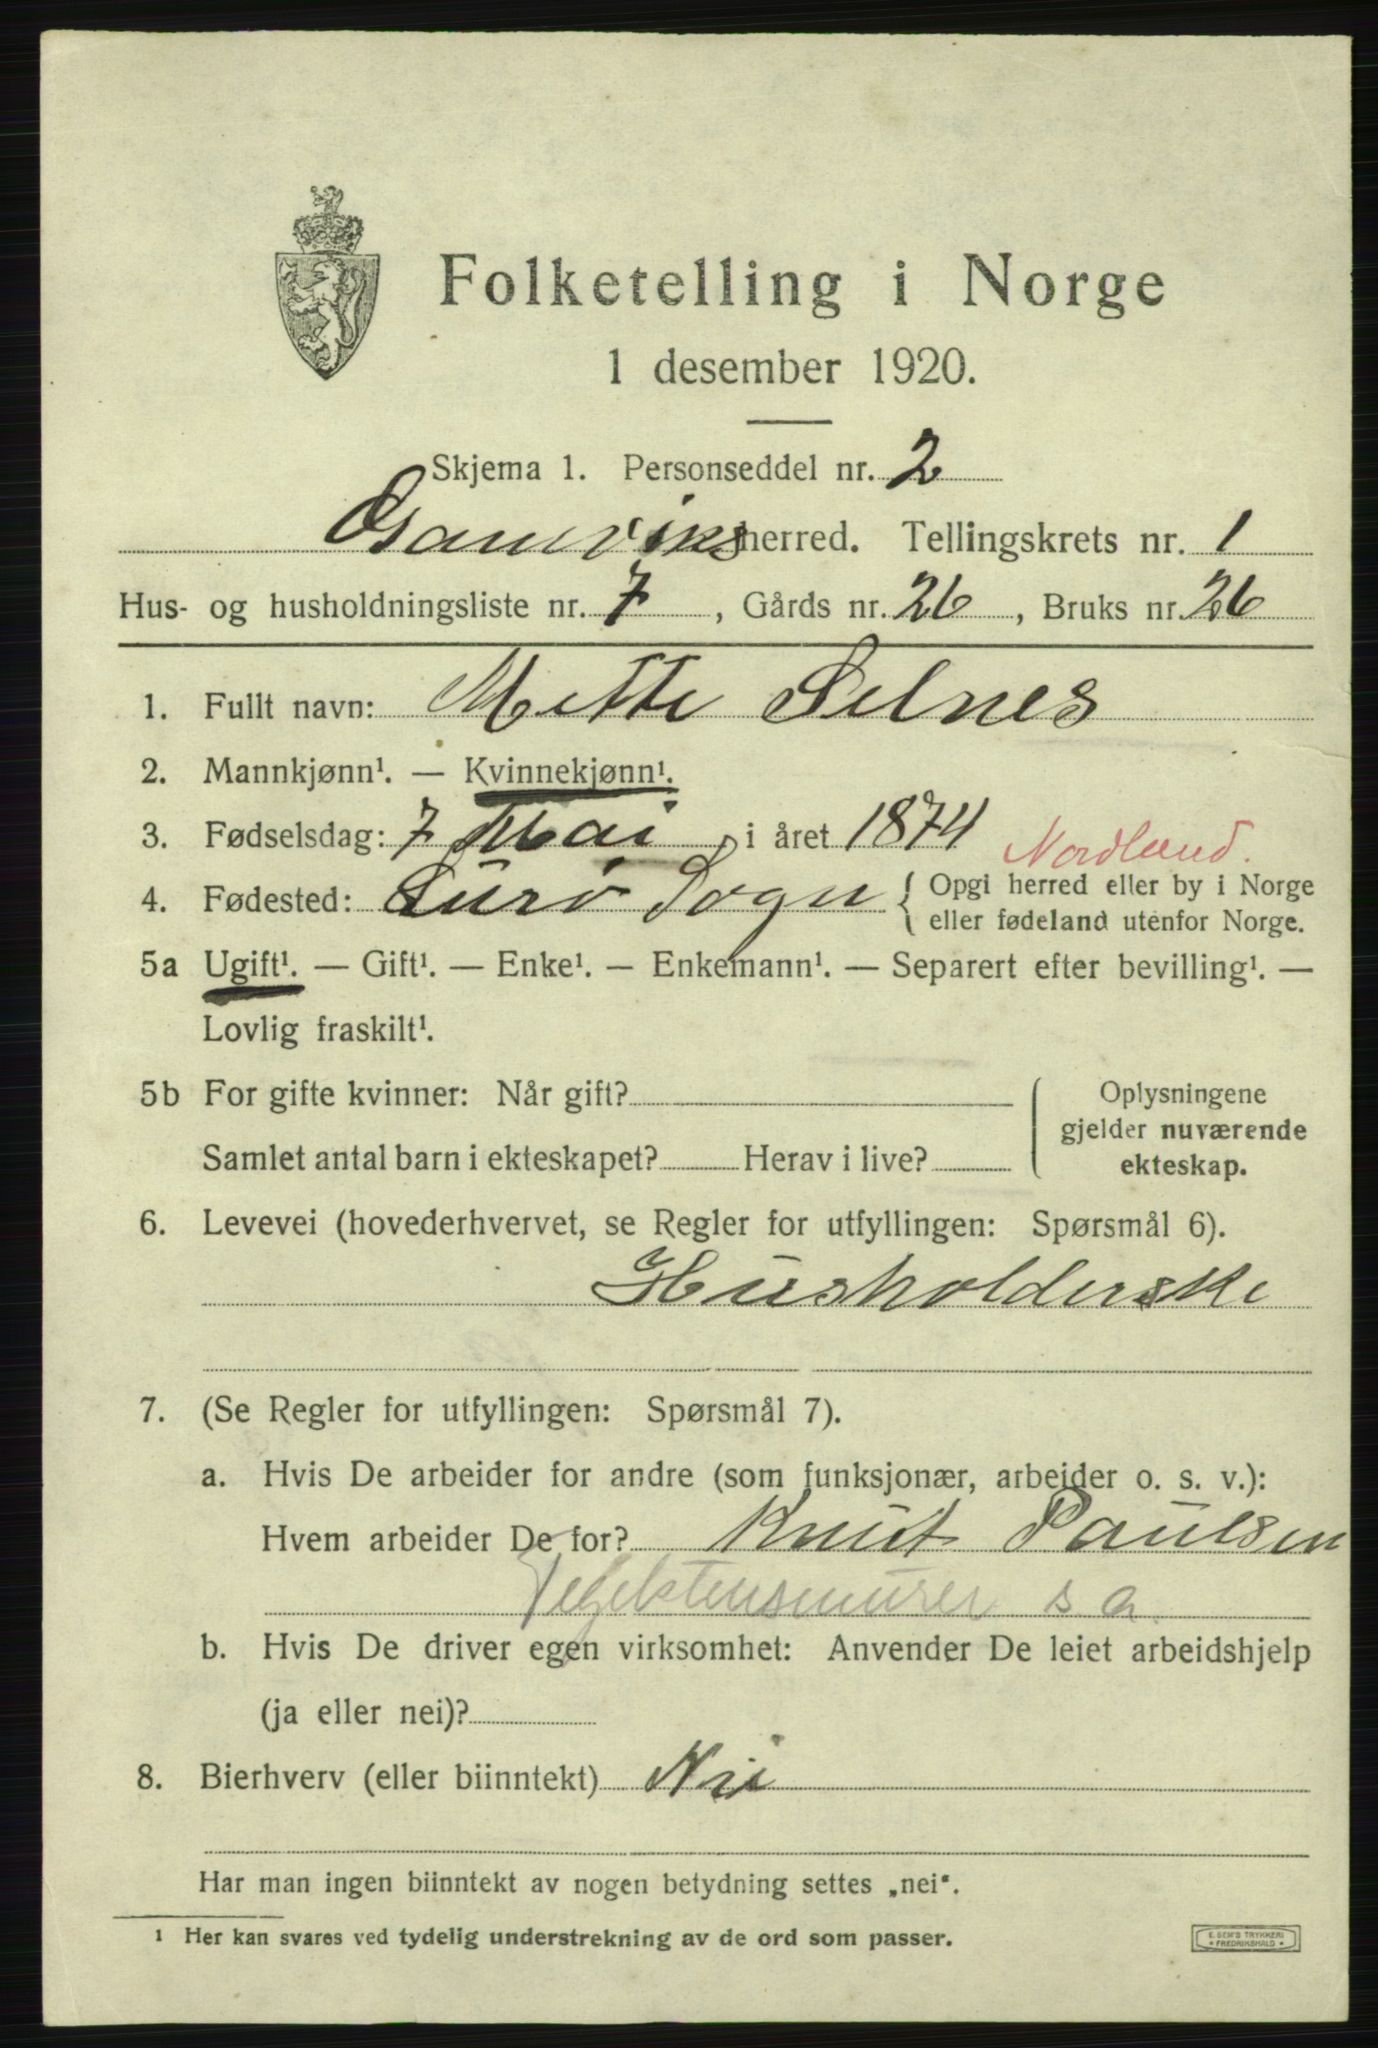 Folketelling i Norge
1 desember 1920.
Skjema 1. Personseddel nr. 2
Gamviks herred. Tellingskrets nr. 1
Hus- og husholdningsliste nr. 7, Gårds nr. 26, Bruks nr. 26
1. Fullt navn: Mette Selnes
2. Mannkjønn¹. — Kvinnekjønn¹.
3. Fødselsdag: 7 Mai, i året 1874
Nordland.
4. Fødested: Lurø Sogn { Opgi herred eller by i Norge
eller fødeland utenfor Norge.
5a Ugift¹. — Gift¹. — Enke¹. — Enkemann¹. — Separert efter bevilling¹. —
Lovlig fraskilt¹.
5b For gifte kvinner: Når gift?
Samlet antal barn i ekteskapet? Herav i live?
Oplysningene
gjelder nuværende
ekteskap.
6. Levevei (hovederhvervet, se Regler for utfyllingen: Spørsmål 6).
Husholderske
7. (Se Regler for utfyllingen: Spørsmål 7).
a. Hvis De arbeider for andre (som funksjonær, arbeider o. s. v.):
Hvem arbeider De for? Knut Paulsen
s a.
b. Hvis De driver egen virksomhet: Anvender De leiet arbeidshjelp
(ja eller nei)?
8. Bierhverv (eller biinntekt) Nei
Har man ingen biinntekt av nogen betydning settes „nei“.
¹ Her kan svares ved tydelig understrekning av de ord som passer.
E. SEM'S TRYKKERI
• FREDRIKSHALD •